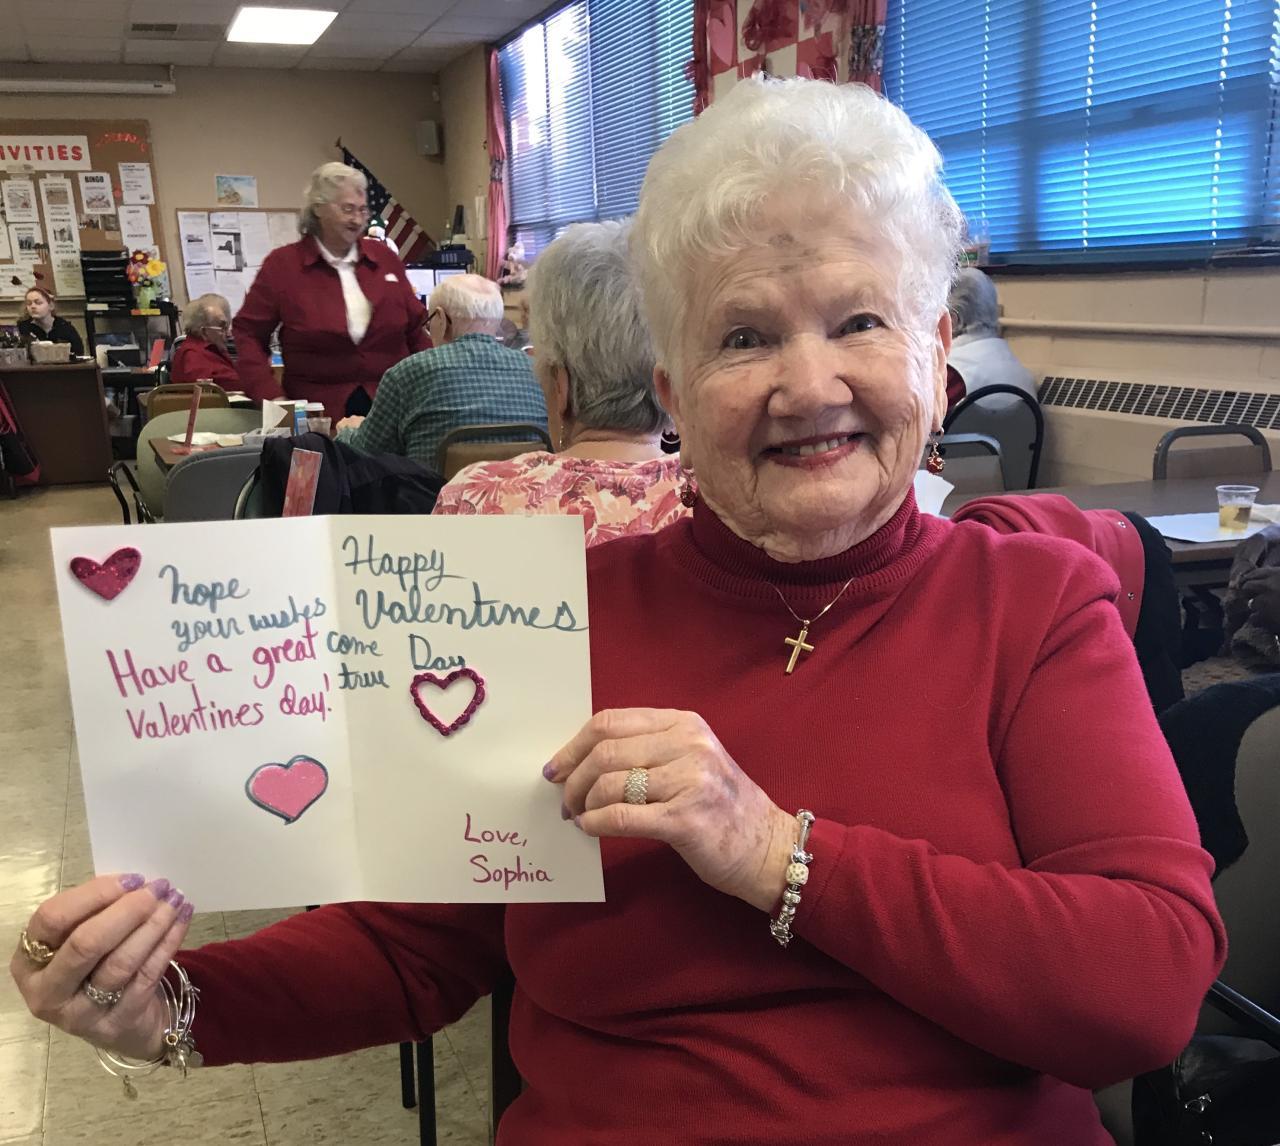 IVITIES
BINGO
hope
your wishes
come
true
Have a great
Valentines day!
Happy
Valentines
Day
Love,
Sophia